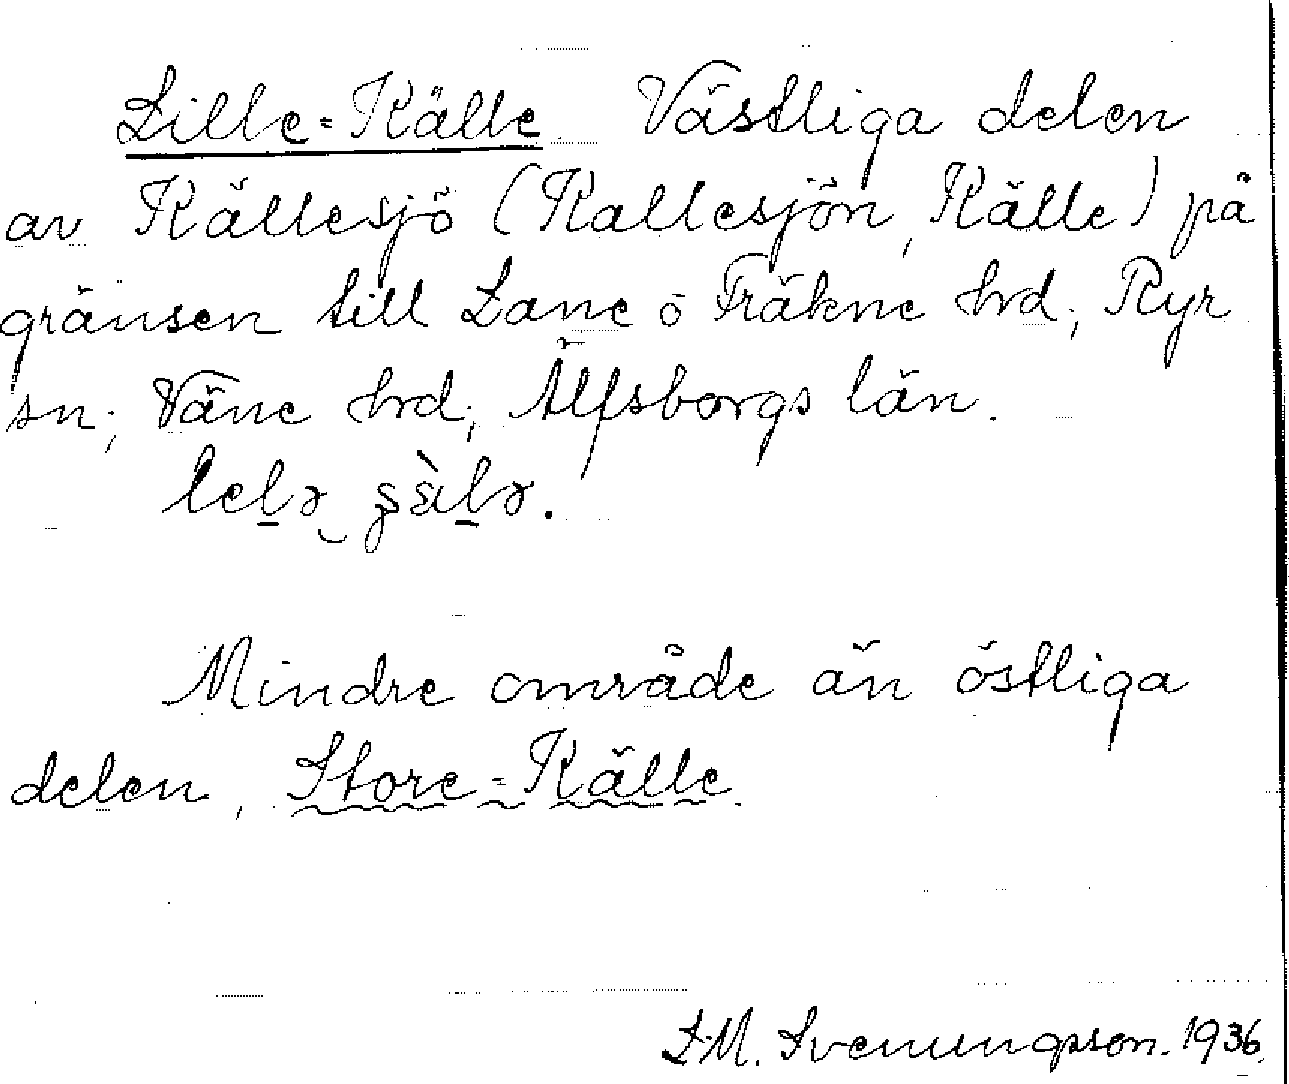 Lille-Källe Västliga delen
av Källesjö (Kallesjön, Källe) på
gränsen till Lane o Fräkne hrd; Ryr
sn; Väne hrd; Älfsborgs län.
Mindre område än östliga
delen, Store-Källe.
L.M. Svenungsson. 1936